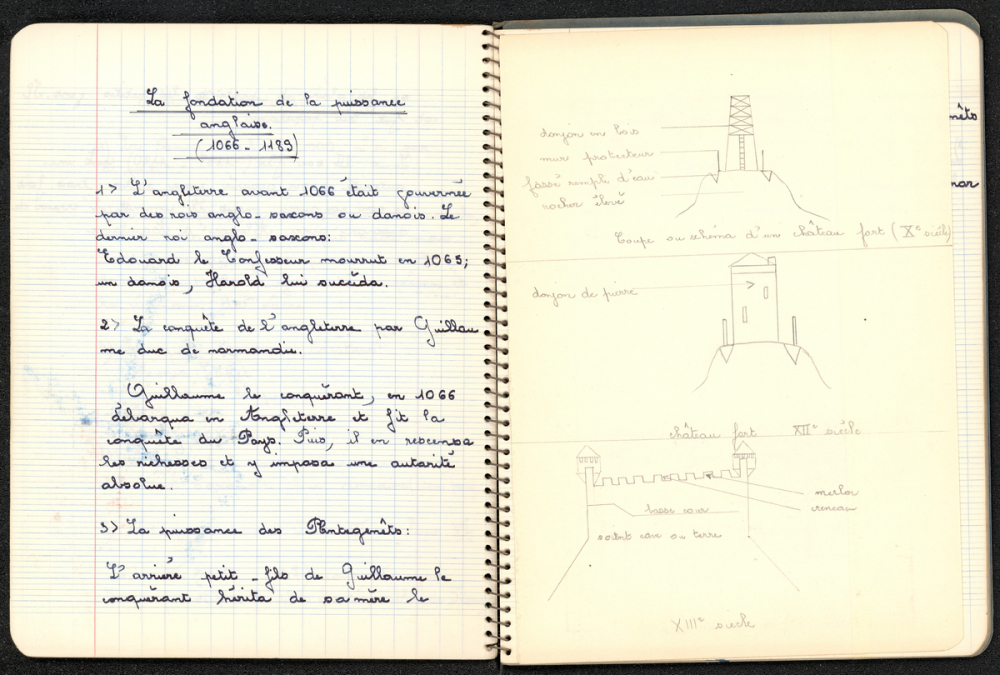 La fondation de la puissance
anglaise.
(1066 - 1189)
1> L'angleterre avant 1066 était gouvernée
par des rois anglo-saxons ou danois. Le
dernier roi anglo-saxons:
Edouard le Confesseur mourrut en 1065;
un danois, Harold lui succéda.
2> La conquête de l'angleterre par Guillau
me duc de normandie.
Guillaume le conquérant, en 1066
débarqua en Angleterre et fit la
conquête du Pays. Puis, il en rescensa
les richesses et y imposa une autorité
absolue.
3> La puissance des Plantegenêts:
L'arrière petit-fils de Guillaume le
conquérant hérita de sa mère le
donjon en bois
mur protecteur
fossé rempli d'eau
rocher élevé
Coupe ou schéma d'un château fort (Xe siècle)
donjon de pierre
château fort XIIe siècle
merlon
creneau
basse cour
cave ou terre
XIIIe siècle
nêts